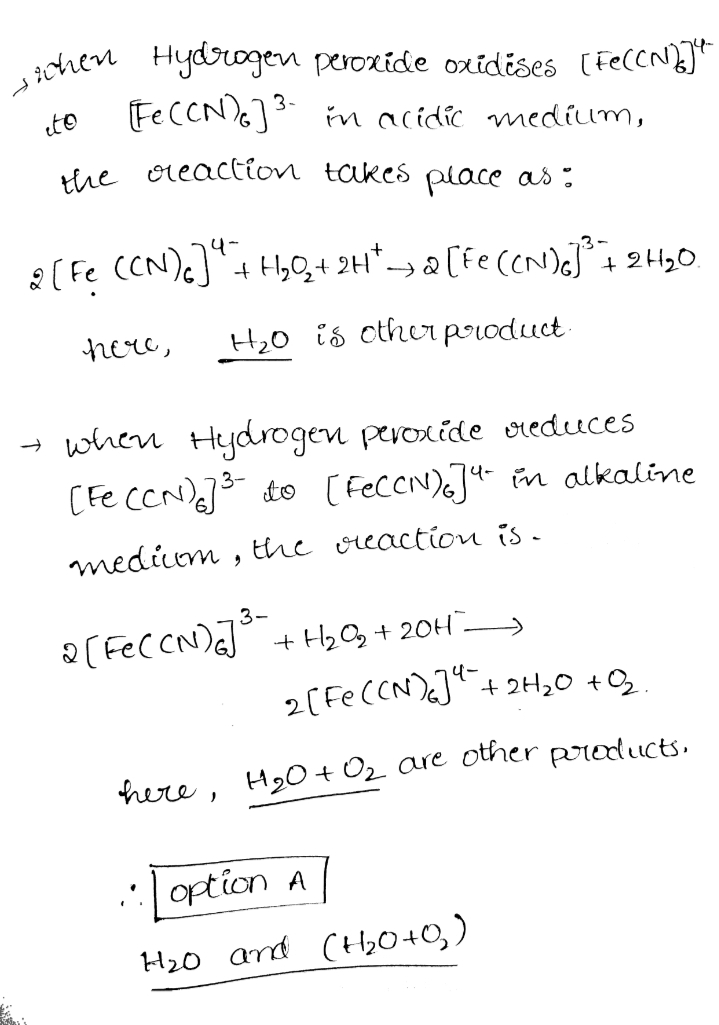 → when Hydrogen peroxide oxidises [Fe(CN)₆]⁴⁻
to [Fe(CN)₆]³⁻ in acidic medium,
the reaction takes place as :
2[Fe (CN)₆]⁴⁻ + H₂O₂ + 2H⁺ → 2[Fe(CN)₆]³⁻ + 2H₂O.
here, H₂O is other product.
→ when Hydrogen peroxide reduces
[Fe(CN)₆]³⁻ to [Fe(CN)₆]⁴⁻ in alkaline
medium, the reaction is -
2[Fe(CN)₆]³⁻ + H₂O₂ + 2OH⁻ →
2[Fe(CN)₆]⁴⁻ + 2H₂O + O₂.
here, H₂O + O₂ are other products.
∴ option A
H₂O and (H₂O+O₂)